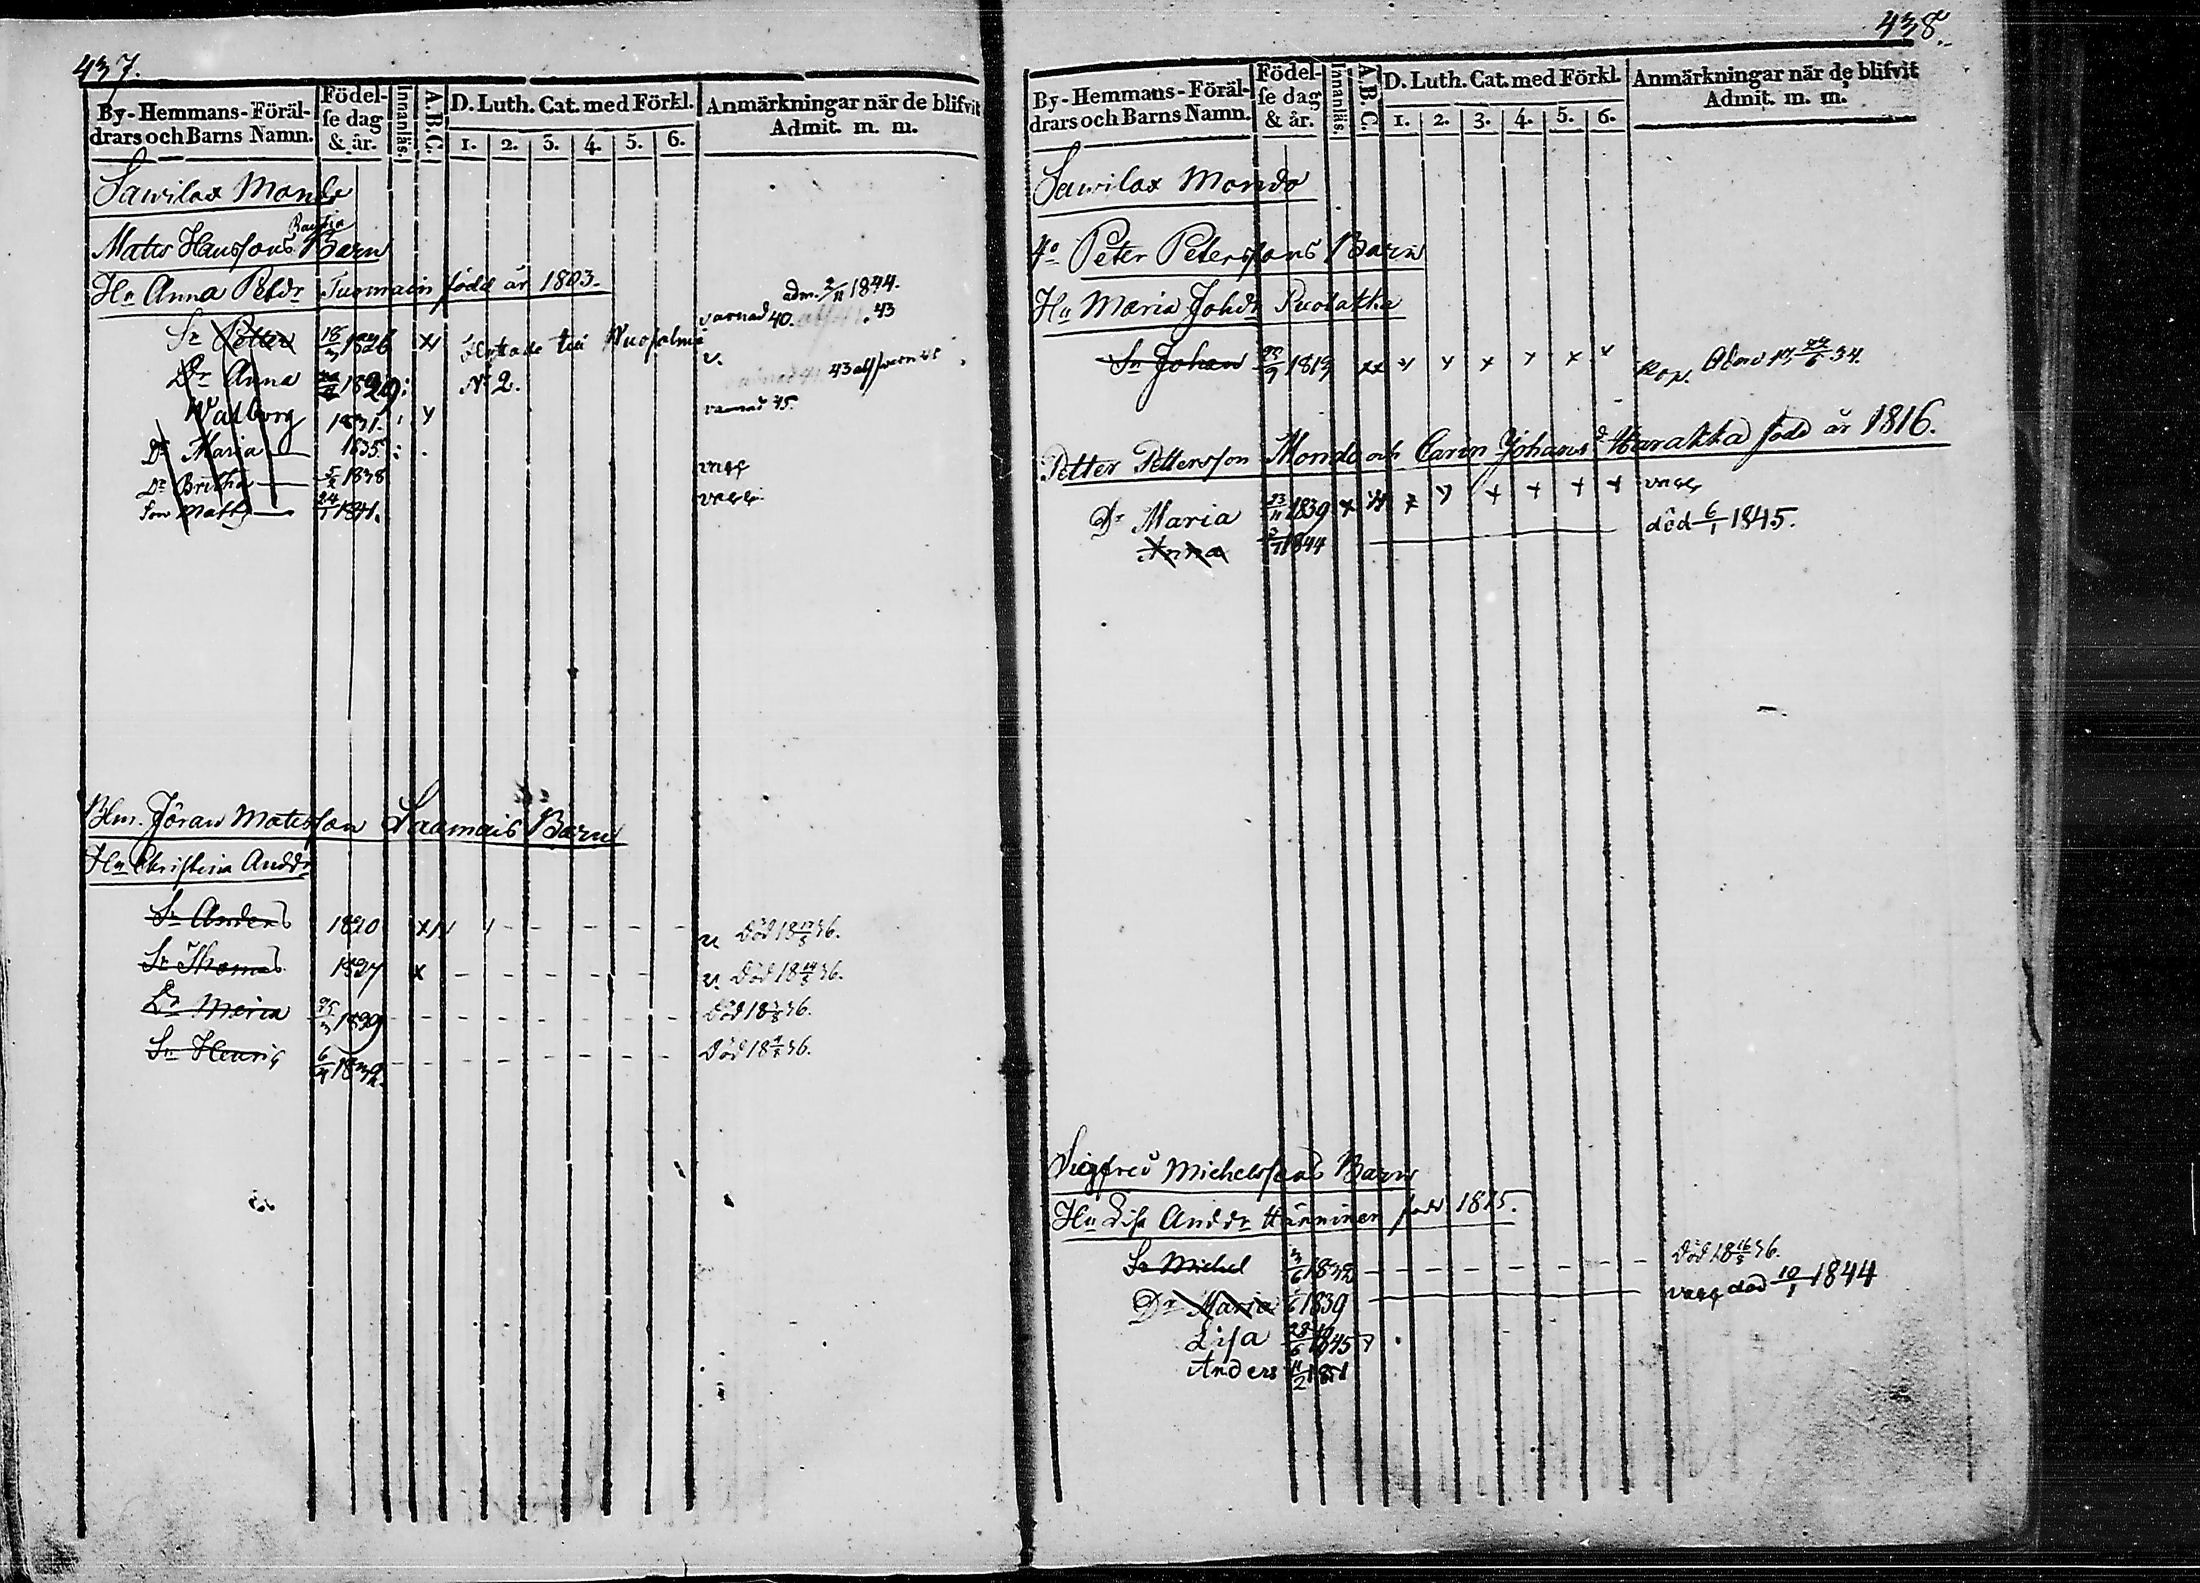 437.
By-Hemmans-Föräl-
drars och Barns Namn.
Födel-
se dag
& år.
Innanläs.
A.B.C.
D. Luth. Cat. med Förkl.
1. 2. 3. 4. 5. 6.
Anmärkningar när de blifvit
Admit. m. m.
Sawilax Mondo
Mats Hanssons Barn
Hu Anna Petdr född år 1803.
adm. 2/11 1844.
Sn Petter 18/3 1826 varnad 40. . 43
Dr Anna 1829: No 2. v.
Walborg 1831. varnad 45.
Dr Maria 1835
Dr Britha 5/2 1838 vacc
Son Matts 24/1 1841. vacc
Blm. Jöran Matsson Saamais Barn
Hu Christina Anddr
Sn Anders 1820 v. Död 18 17/8 36.
Sn Thomas 1827 x v. Död 18 14/8 36.
Dr Maria 25/3 1829 Död 18 36.
Sn Henric 6/4 1832. Död 18 36.
438.
By-Hemmans-Föräl-
drars och Barns Namn.
Födel-
se dag
& år.
Innanläs.
A.B.C.
D. Luth. Cat. med Förkl.
1. 2. 3. 4. 5. 6.
Anmärkningar när de blifvit
Admit. m. m.
Sawilax Mondo
Peter Peterssons Barn
Hu Maria Johdr Puolakka
Sn Johan 1819 kop.
Petter Pettersson Mondo och Carin Johansd Harakka född år 1816.
Dr Maria 23/11 1839 vacc
Anna 1844 död 6/1 1845.
Sigfred Michelssons Barn
Hu Lisa Anddr Hänninen född 1815.
Sn Michel 3/6 1832 Död 18 16/8 36.
Dr Maria 1839 vacc död 10/1 1844
Lisa 23/6 1845
Anders 11/2 1851